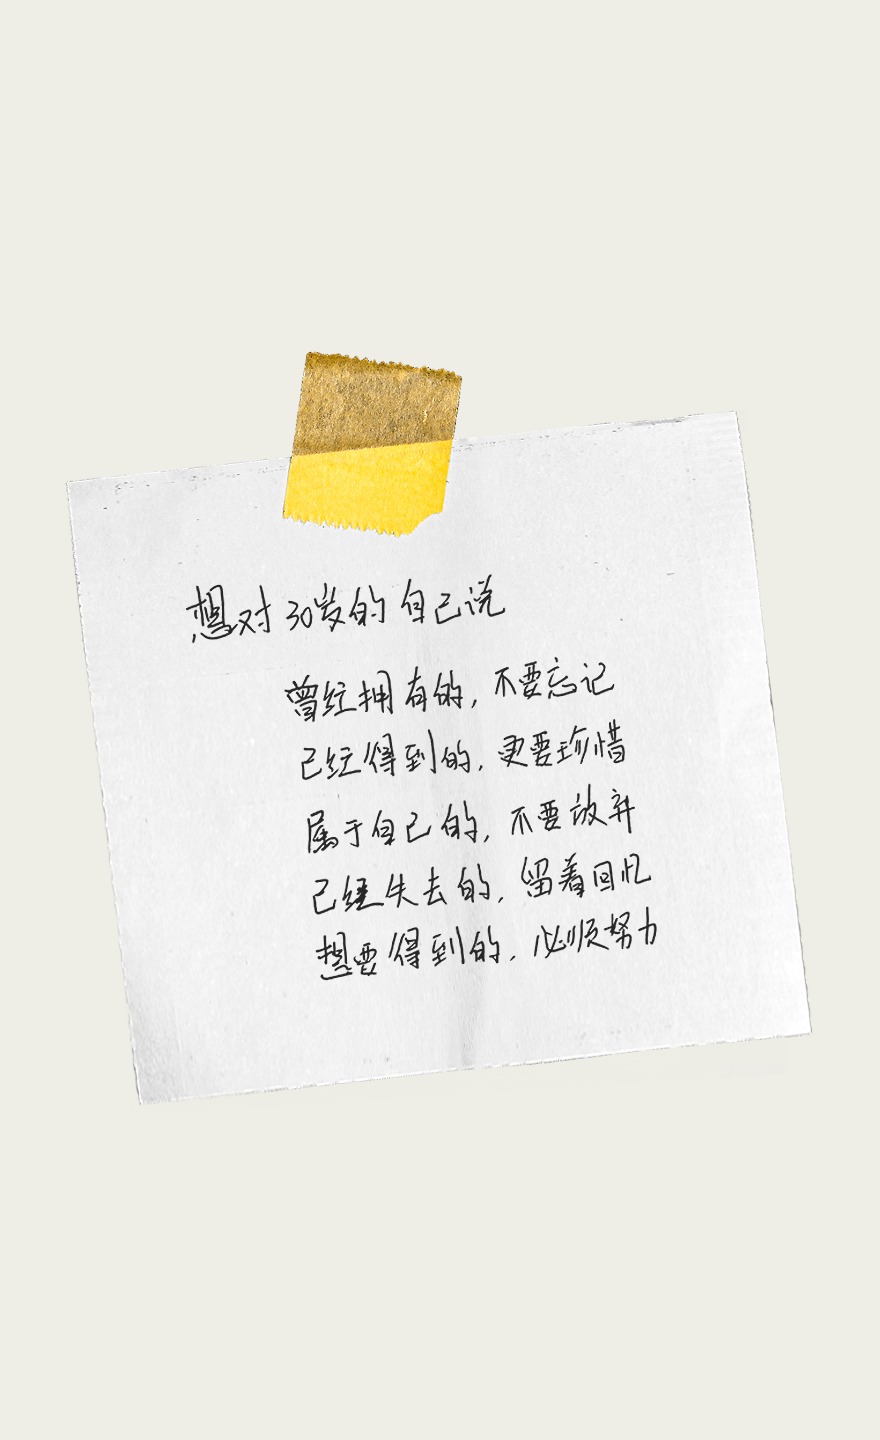 想对30岁的自己说
曾经拥有的,不要忘记
已经得到的,更要珍惜
属于自己的,不要放弃
已经失去的,留着回忆
想要得到的,必须努力